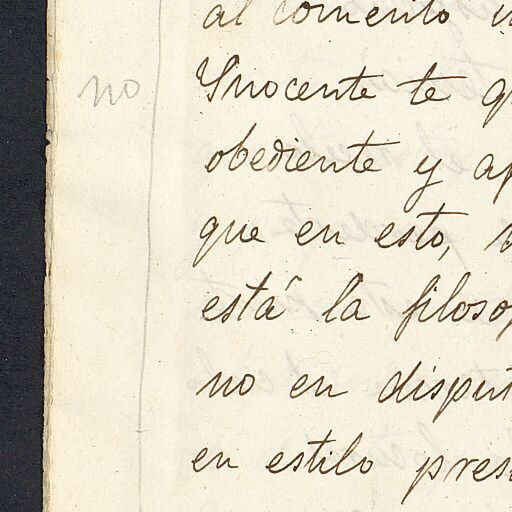 al comento
no Inocente te q
obediente y ap
que en esto,
está la filosof
no en disput
en estilo pres